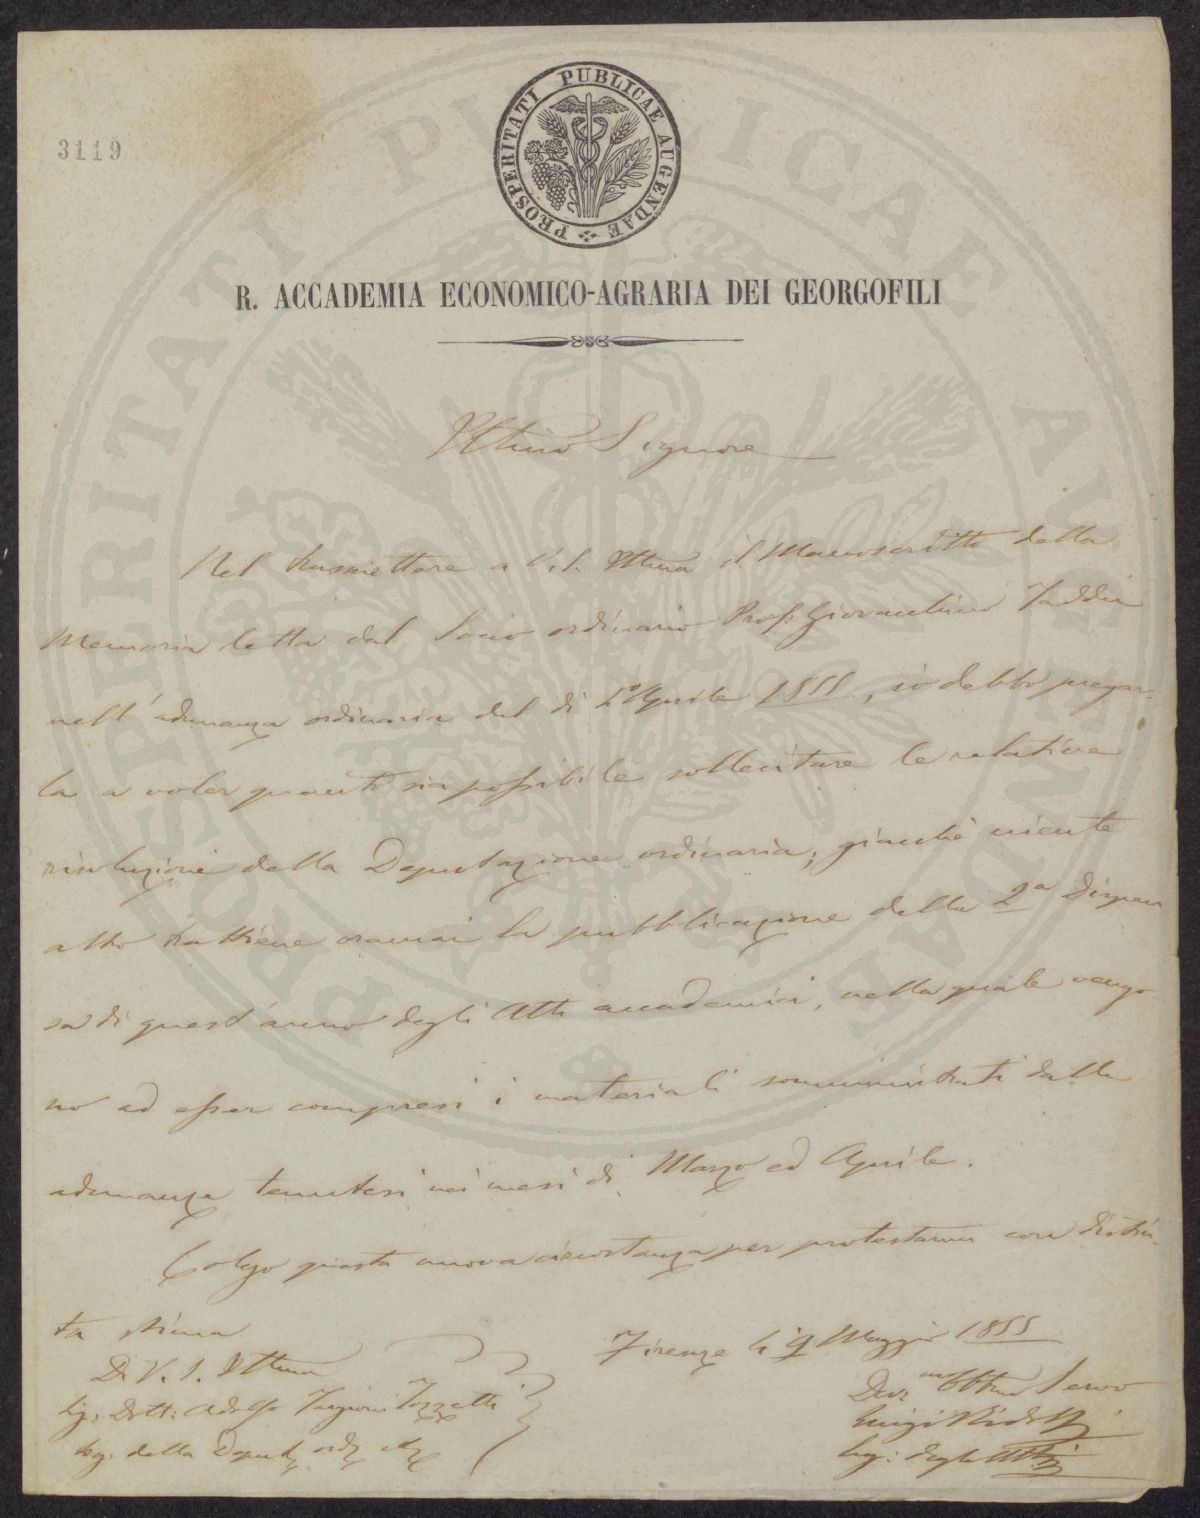 3119
PROSPERITATI PUBLICAE AUGENDAE
R. ACCADEMIA ECONOMICO-AGRARIA DEI GEORGOFILI
Illmo Signore
Nel trasmettere a V. S. Illma il Manoscritto della
Memoria letta dal Socio ordinario Prof. Giovacchino Taddei
nell'adunanza ordinaria del dì 1º Aprile 1855, io debbo pregar-
la a voler quanto sia possibile sollecitare le relative
risoluzioni della Deputazione ordinaria; giacchè niente
altro trattiene oramai la pubblicazione della 2a Dispen
sa di quest'anno degli Atti accademici, nella quale vengo
no ad esser compresi i materiali somministrati dalle
adunanze tenutesi nei mesi di Marzo ed Aprile.
Colgo questa nuova circostanza per protestarmi con distin-
ta stima
Di V. S. Illma
Firenze li 9 Maggio 1855
Sig: Dott: Adolfo Targioni Tozzetti
Seg. della Deputaz ordin
Dev: mo Obbmo Servo
Luigi Ridolfi
Seg: degli Atti